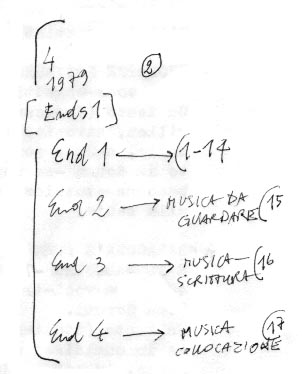 4
1979
2
[Ends 1]
End 1 → (1-14
End 2 → MUSICA DA
GUARDARE (15
End 3 → MUSICA-
SCRITTURA (16
End 4 → MUSICA (17
COLLOCAZIONE